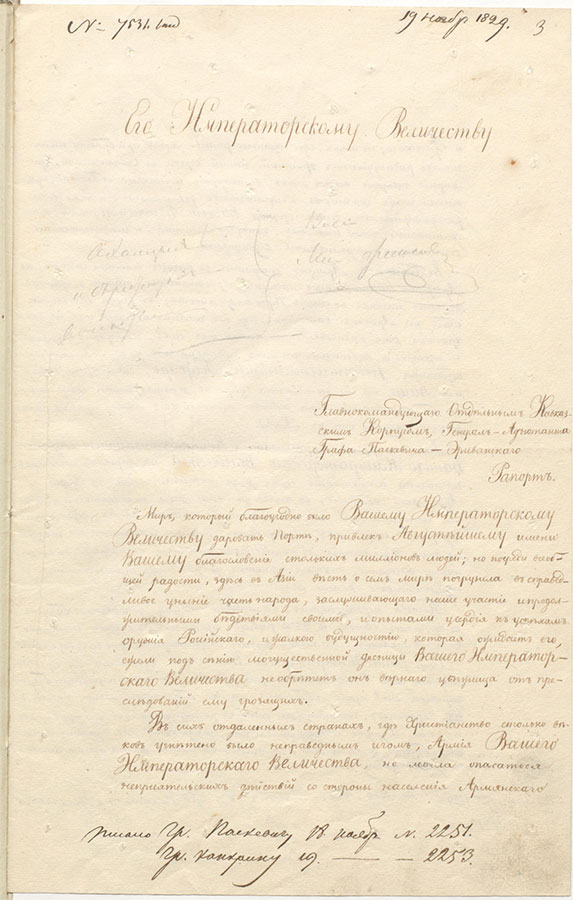 № 7531.
19 ноябр 1829.
3
Его Императорскому Величеству
Главнокомандующаго Отдѣльнымъ Кавказ-
скимъ Корпусомъ, Генералъ-Адъютанта
Графа Паскевича-Эриванскаго
Рапортъ.
Миръ, который благоугодно было Вашему Императорскому
Величеству даровать Портѣ, привлекъ Августѣйшему имени
Вашему благословенія столькихъ милліоновъ людей; но посреди всеоб-
щей радости, здѣсь въ Азіи вѣсть о семъ мирѣ погрузила въ справед-
ливое уныніе часть народа, заслуживающаго наше участіе и продол-
жительными бѣдствіями своими, и опытами усердія къ успѣхамъ
оружія Россійскаго, и жалкою будущностію, которая ожидаетъ его,
ежели подъ сѣнію могущественной десницы Вашего Император-
скаго Величества не обрѣтетъ онъ вѣрнаго убѣжища отъ пре-
слѣдованій ему грозящихъ.
Въ сихъ отдаленныхъ странахъ, гдѣ Христіанство столько вѣ-
ковъ угнѣтено было неправеднымъ игомъ, Армія Вашего
Императорскаго Величества, не могла опасаться
непріятельскихъ дѣйствій со стороны населенія Армянскаго
писано Гр. Паскевичу 18. ноябр. N. 2251.
Гр. Канкрину 19. — — 2253.